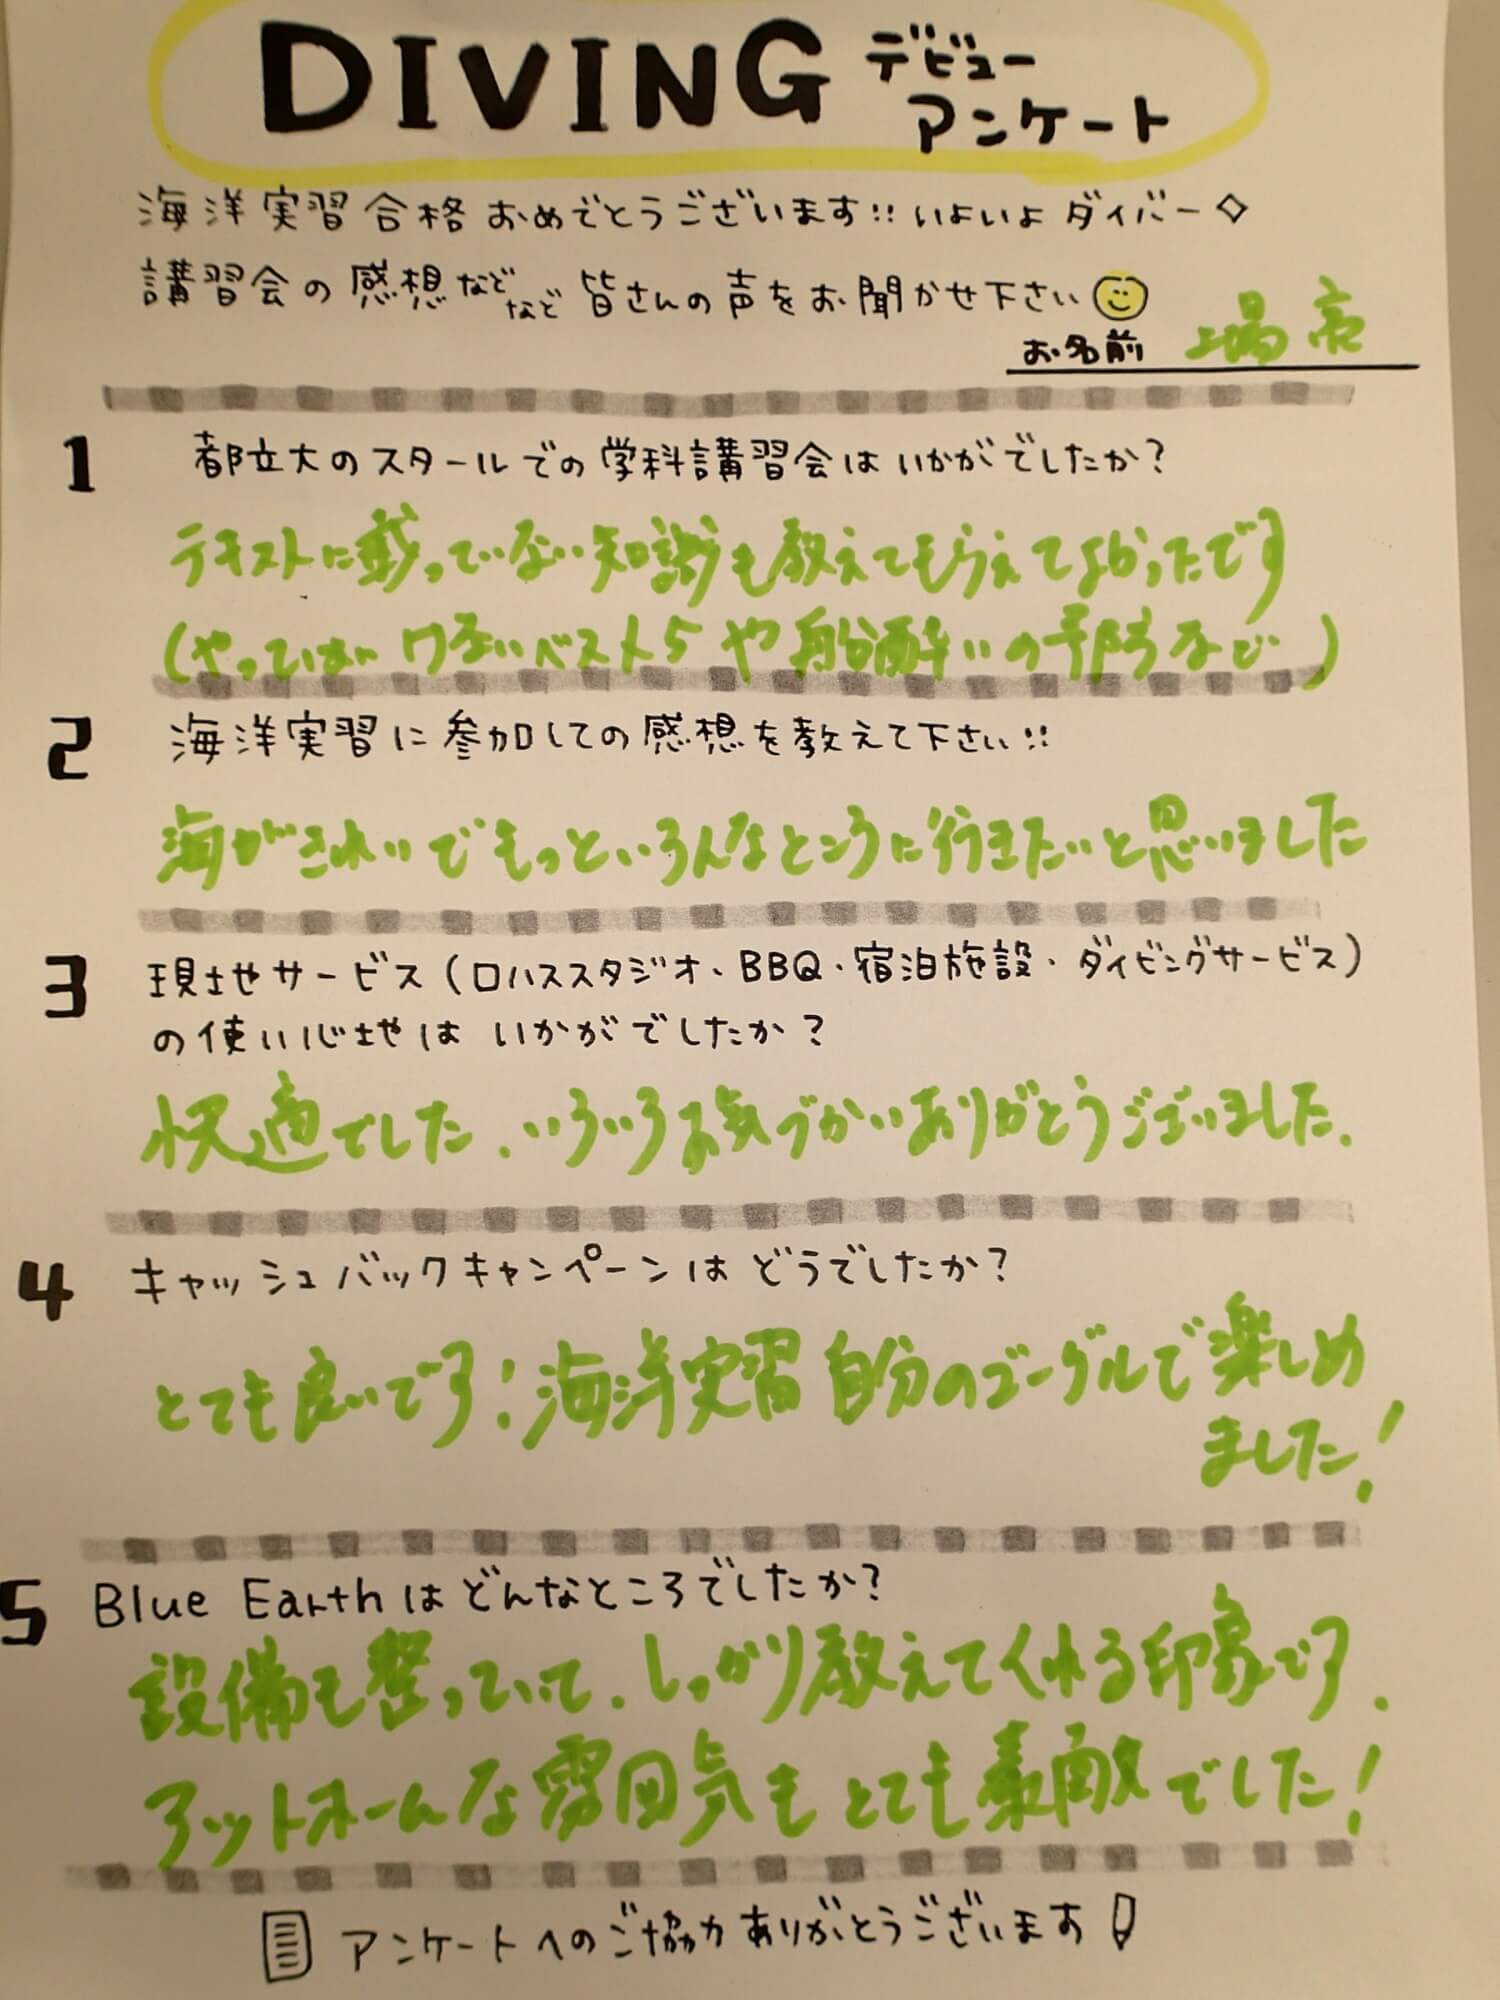 DIVING デビュー
アンケート
海洋実習合格おめでとうございます!!いよいよダイバー◇
講習会の感想などなど皆さんの声をお聞かせ下さい
お名前 上場 亮
1 都立大のスタールでの学科講習会はいかがでしたか?
テキストに載っていない知識も教えてもらえてよかったです
(やってはいけないベスト5や船酔いの予防など)
2 海洋実習に参加しての感想を教えて下さい!!
海がきれいでもっといろんなところに行きたいと思いました
3 現地サービス(ロハススタジオ、BBQ・宿泊施設・ダイビングサービス)
の使い心地はいかがでしたか?
快適でした.いろいろお気づかいありがとうございました.
4 キャッシュバックキャンペーンはどうでしたか?
とても良いです!海洋実習自分のゴーグルで楽しめ
ました!
5 Blue Earthはどんなところでしたか?
設備も整っていて.しっかり教えてくれる印象です.
アットホームな雰囲気もとても素敵でした!
アンケートへのご協力ありがとうございます